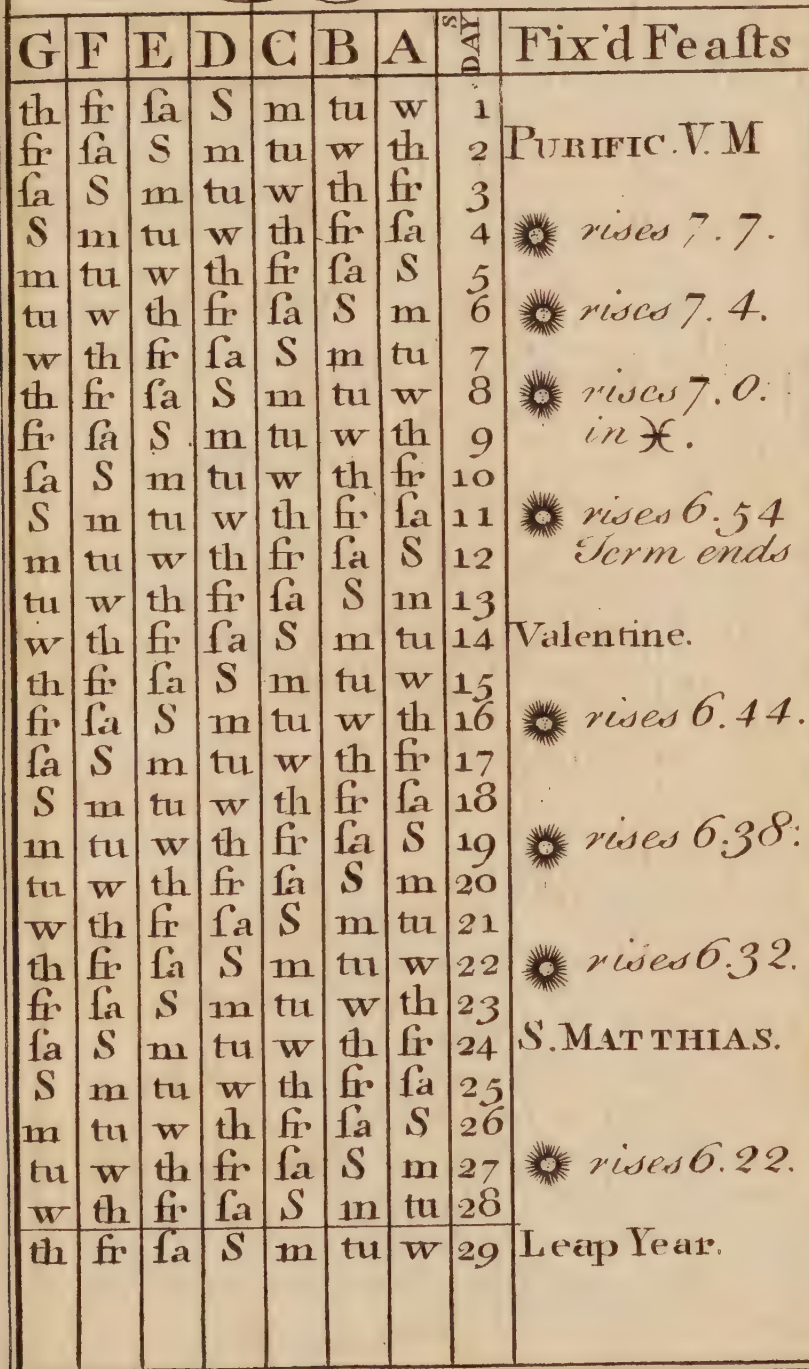 G F E D C B A S DAY Fix'd Feaſts
th fr ſa S m tu w 1
fr ſa S m tu w th 2 PURIFIC. V. M
ſa S m tu w th fr 3
S m tu w th fr ſa 4 rises 7. 7.
m tu w th fr ſa S 5
tu w th fr ſa S m 6 rises 7. 4.
w th fr ſa S m tu 7
th fr ſa S m tu w 8 rises 7. 0:
fr ſa S m tu w th 9 in ♓.
ſa S m tu w th fr 10
S m tu w th fr ſa 11 rises 6. 54
m tu w th fr ſa S 12 Term ends
tu w th fr ſa S m 13
w th fr ſa S m tu 14 Valentine.
th fr ſa S m tu w 15
fr ſa S m tu w th 16 rises 6. 44.
ſa S m tu w th fr 17
S m tu w th fr ſa 18
m tu w th fr ſa S 19 rises 6. 38:
tu w th fr ſa S m 20
w th fr ſa S m tu 21
th fr ſa S m tu w 22 rises 6. 32.
fr ſa S m tu w th 23
ſa S m tu w th fr 24 S. MATTHIAS.
S m tu w th fr ſa 25
m tu w th fr ſa S 26
tu w th fr ſa S m 27 rises 6. 22.
w th fr ſa S m tu 28
th fr ſa S m tu w 29 Leap Year.